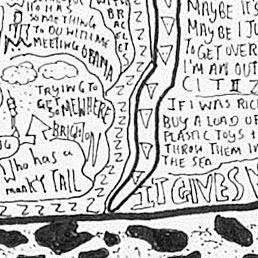 SOMETHING
TO DO WITH ME
MEETING OBAMA
BRA
CEL
ET
TRYING TO
GET SOMEWHERE
BRIGHTON
Who has a
manKY TAIL
MAYBE IT'S
MAYBE I JU
TO GET OVER
I'M AN OUT
CITIZ
IF I WAS RIC
BUY A LOAD OF
PLASTIC TOYS +
THROW THEM IN
THE SEA
IT GIVES